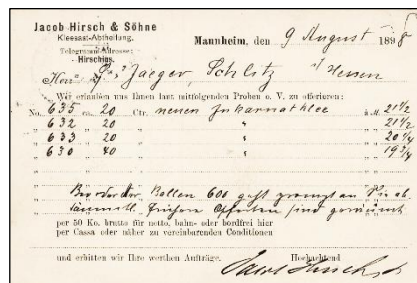 Jacob Hirsch & Söhne
Kleesaat-Abtheilung.
Telegramm-Adresse:
Hirschios.
Mannheim, den 9 August 1898
Herrn Jaeger, Schlitz i/Hessen
Wir erlauben uns Ihnen laut mitfolgenden Proben o. V. zu offeriren:
No. 635 ca. 20 Ctr. neuen Inkarnatklee à M. 21 1/2
" 632 " 20 " " " 21 1/2
" 633 " 20 " " " 20 1/4
" 630 " 40 " " " 19 3/4
Ballen 600
sämmtl. frühere Offerten sind
per 50 Ko. brutto für netto, bahn- oder bordfrei hier
per Cassa oder näher zu vereinbarenden Conditionen
und erbitten wir Ihre werthen Aufträge. Hochachtend
Jacob Hirsch